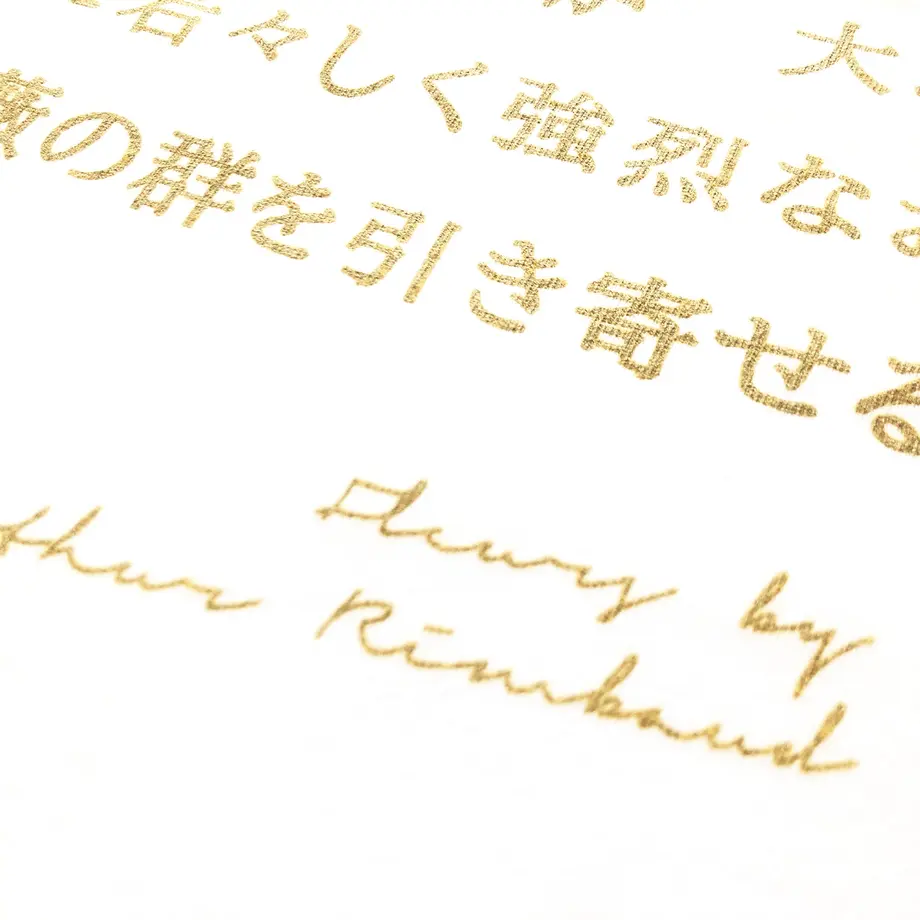 大
若々しく強烈な
薇の群を引き寄せる
Fleury by
thur Rimbaud